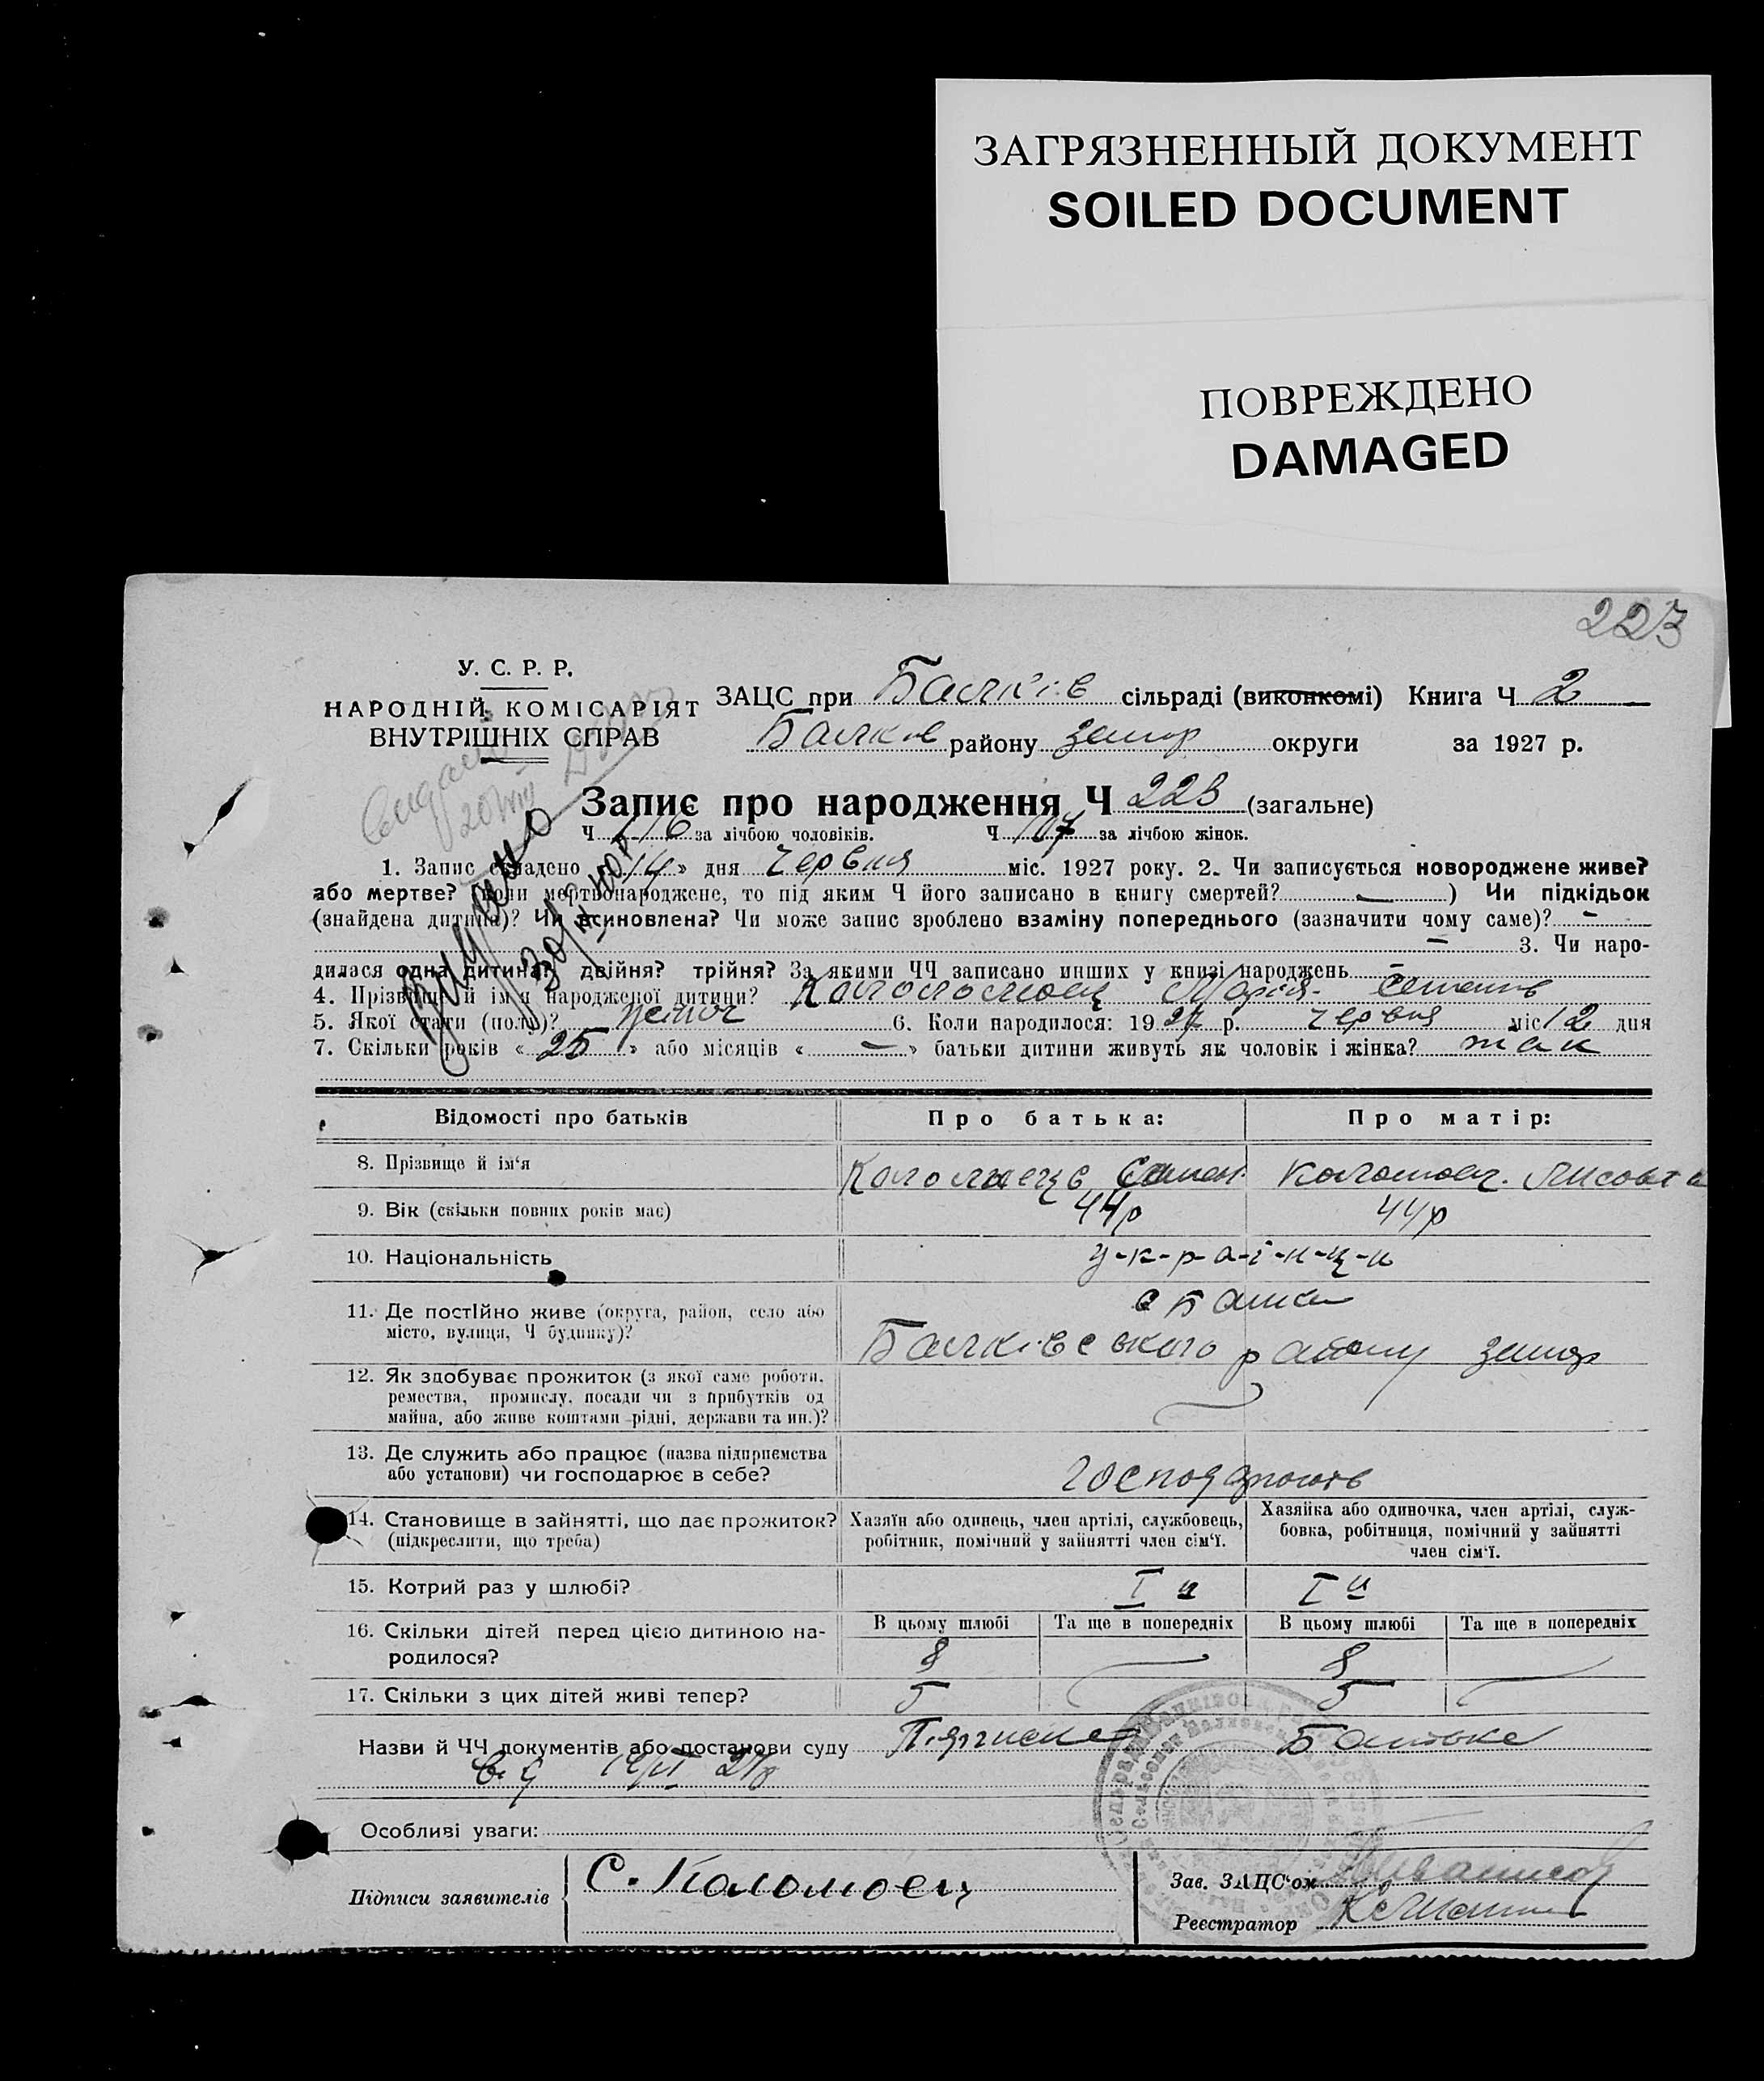 ЗАГРЯЗНЕННЫЙ ДОКУМЕНТ
SOILED DOCUMENT
ПОВРЕЖДЕНО
DAMAGED
223
У. С. Р. Р.
НАРОДНІЙ КОМІСАРІЯТ
ВНУТРІШНІХ СПРАВ
ЗАЦС при Балків сільраді (виконкомі) Книга Ч 2
Балків району запор округи за 1927 р.
Запис про народження Ч 223 (загальне)
Ч 116 за лічбою чоловіків. Ч 107 за лічбою жінок.
1. Запис складено « 14 » дня червня міс. 1927 року. 2. Чи записується новороджене живе?
або мертве? Коли мертвонароджене, то під яким Ч його записано в книгу смертей? — ) Чи підкідьок
(знайдена дитина)? Чи всиновлена? Чи може запис зроблено взаміну попереднього (зазначити чому саме)? —
— 3. Чи наро-
дилася одна дитина? двійня? трійня? За якими ЧЧ записано инших у книзі народжень —
4. Прізвище й ім'я народженої дитини? Коломоец Марія
5. Якої стати (полу)? жіноч 6. Коли народилося: 1927 р. червня міс 12 дня
7. Скільки років « 25 » або місяців « — » батьки дитини живуть як чоловік і жінка? так
Видано
Відомості про батьків Про батька: Про матір:
8. Прізвище й ім'я Семен Коломоец
9. Вік (скільки повних років має) 44р 44р
10. Національність у-к-р-а-ї-н-ц-и
11. Де постійно живе (округа, район, село або
місто, вулиця, Ч будинку)? с Балки
Балківського району запор
12. Як здобуває прожиток (з якої саме роботи,
ремества, промислу, посади чи з прибутків од
майна, або живе коштами рідні, держави та ин.)?
13. Де служить або працює (назва підприємства
або установи) чи господарює в себе? господарюють
14. Становище в зайнятті, що дає прожиток?
(підкреслити, що треба)
Хазяїн або одинець, член артілі, службовець,
робітник, помічний у зайнятті член сім'ї.
Хазяйка або одиночка, член артілі, служ-
бовка, робітниця, помічний у зайнятті
член сім'ї.
15. Котрий раз у шлюбі? I й I й
В цьому шлюбі Та ще в попередніх В цьому шлюбі Та ще в попередніх
16. Скільки дітей перед цією дитиною на-
родилося? 8 — 8 —
17. Скільки з цих дітей живі тепер? 5 — 5 —
Назви й ЧЧ документів або постанови суду
Особливі уваги:
Підписи заявителів С. Коломоец
Зав. ЗАЦС'ом
Реєстратор